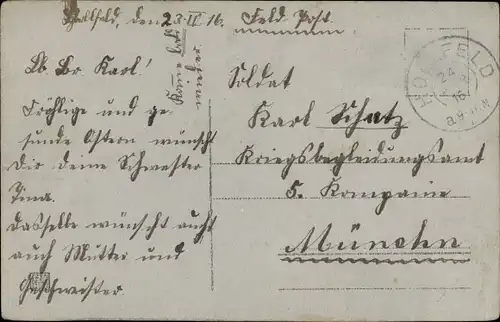 Hollfeld, den 23.IV.16. Feld-Post.
Lb. Br. Karl!
Fröhlige und ge-
sunde Ostern wünscht
Dir deine Schwester
Tina.
Dasselbe wünscht auch
auch Mutter und
Geschwister.
Soldat
Karl Schatz
Kriegsbekleidungsamt
5. Kompanie
München
HOLLFELD
24
16
8-9 V.M